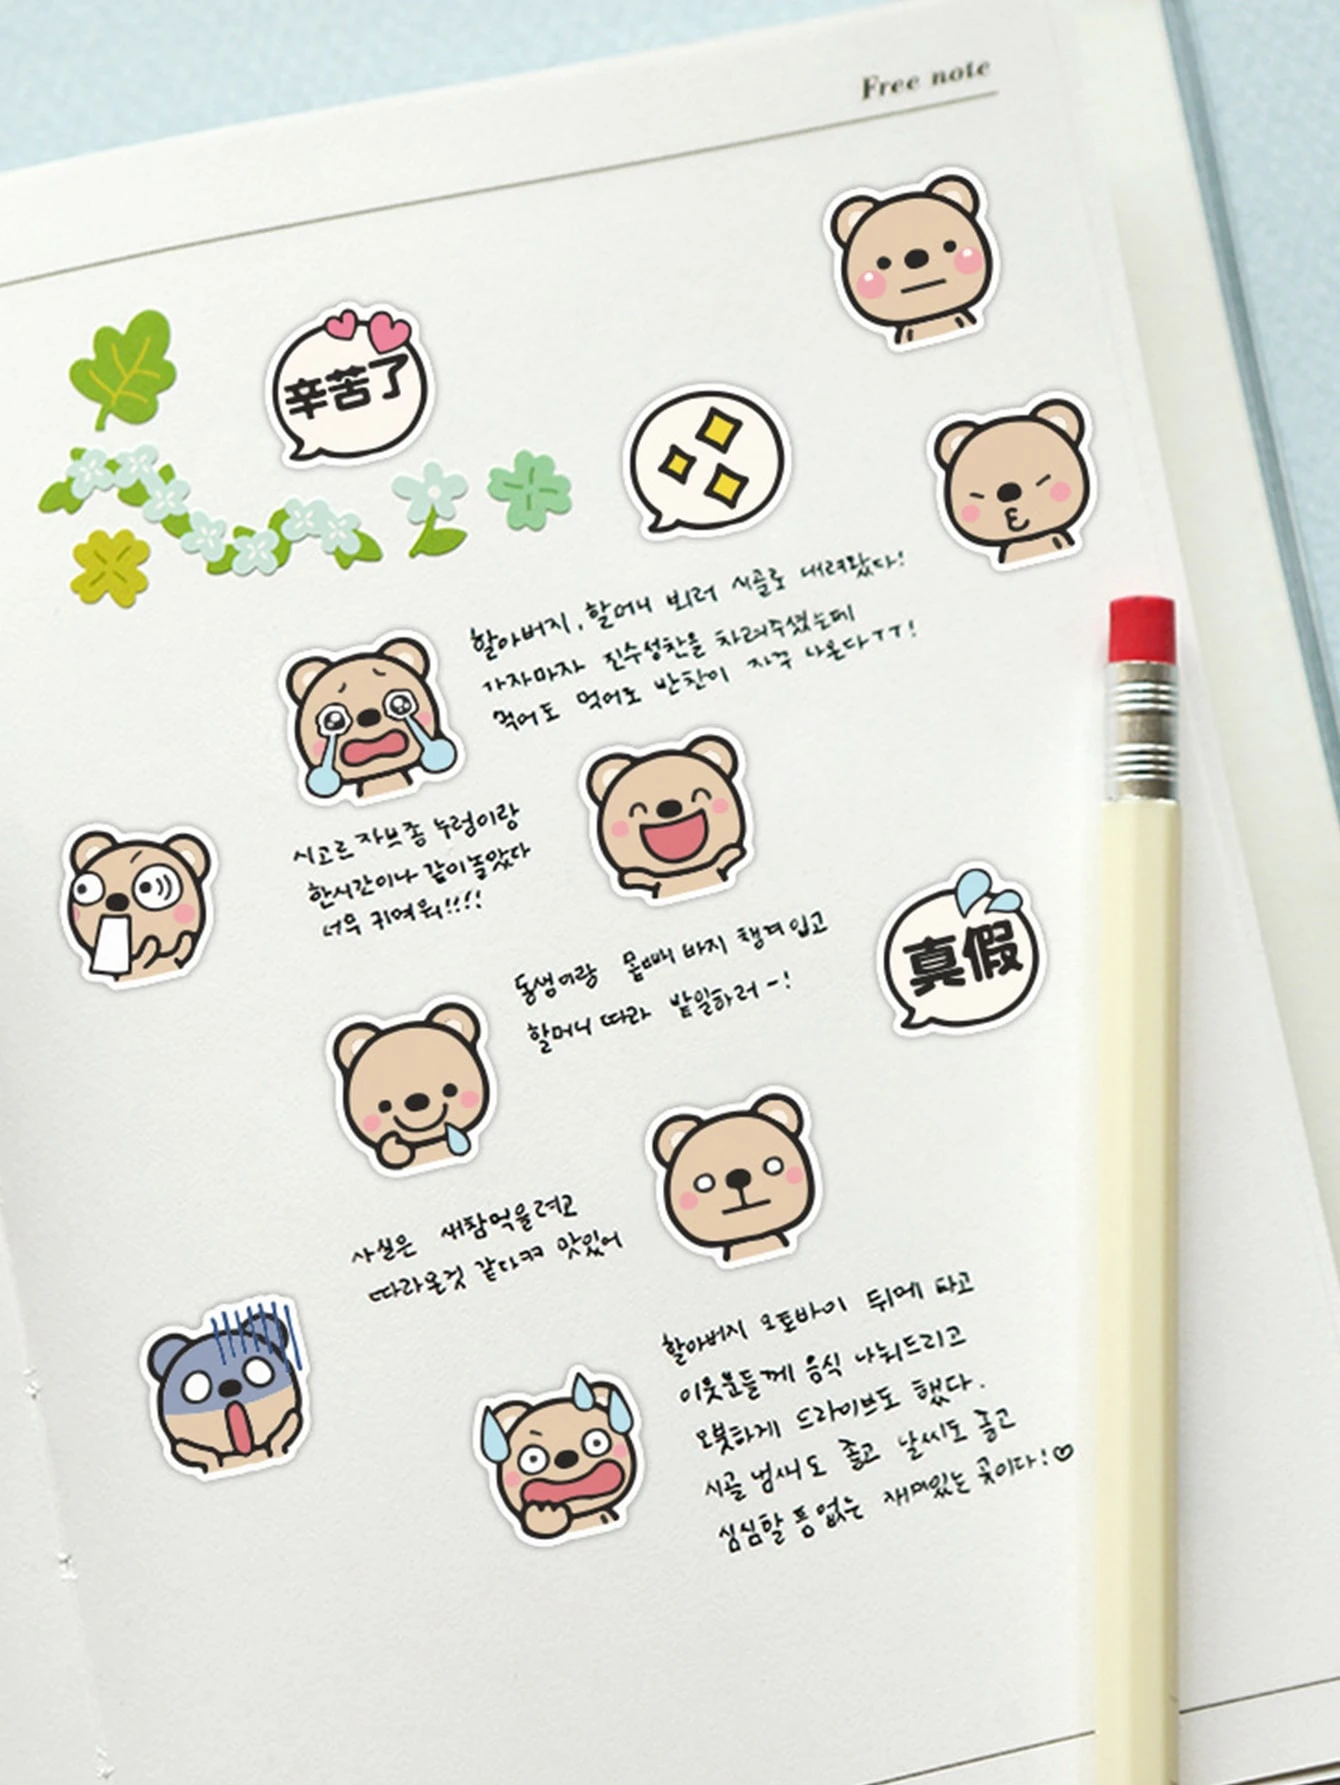 Free note
辛苦了
할아버지, 할머니 뵈러 시골로 내려왔다!
가자마자 진수성찬을 차려주셨는데
먹어도 먹어도 반찬이 자꾸 나온다ㅜㅜ!
시고르자브종 누렁이랑
한시간이나 같이놀았다
너무 귀여워!!!!
동생이랑 몸빼바지 챙겨입고
할머니 따라 밭일하러-!
真假
사실은 새참먹을려고
따라온것 같다ㅋㅋ 맛있어
할아버지 오토바이 뒤에 타고
이웃분들께 음식 나눠드리고
오붓하게 드라이브도 했다.
시골냄새도 좋고 날씨도 좋고
심심할 틈없는 재미있는 곳이다!♡